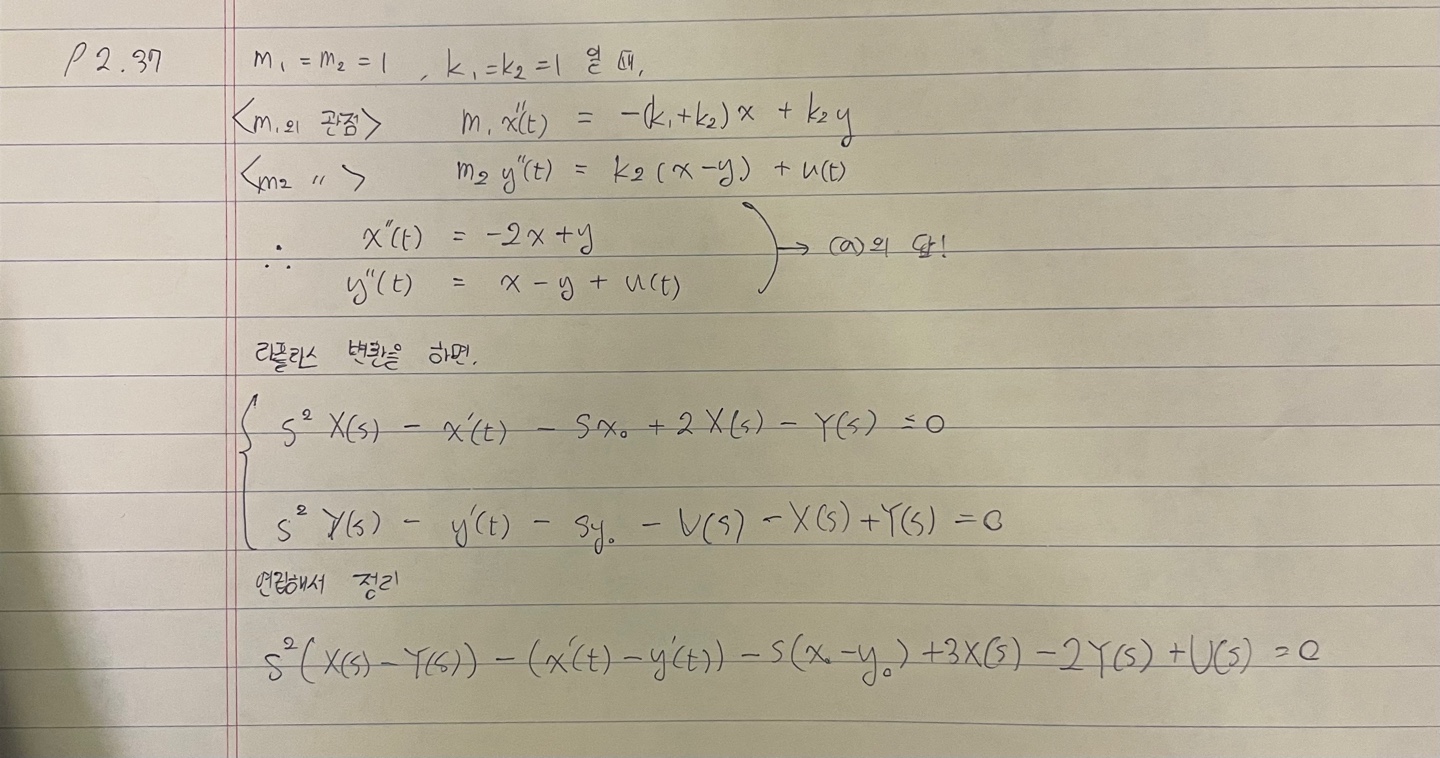 P 2.37
m₁ = m₂ = 1 , k₁ = k₂ = 1 일 때,
<m₁의 관점> m₁ x''(t) = -(k₁+k₂)x + k₂y
<m₂ 〃> m₂ y''(t) = k₂(x-y) + u(t)
∴ x''(t) = -2x+y
y''(t) = x - y + u(t)
→ (a)의 답!
라플라스 변환을 하면,
s² X(s) - x'(t) - sx₀ + 2X(s) - Y(s) = 0
s² Y(s) - y'(t) - sy₀ - U(s) - X(s) + Y(s) = 0
연립해서 정리
s²(X(s) - Y(s)) - (x'(t) - y'(t)) - s(x₀ - y₀) + 3X(s) - 2Y(s) + U(s) = 0